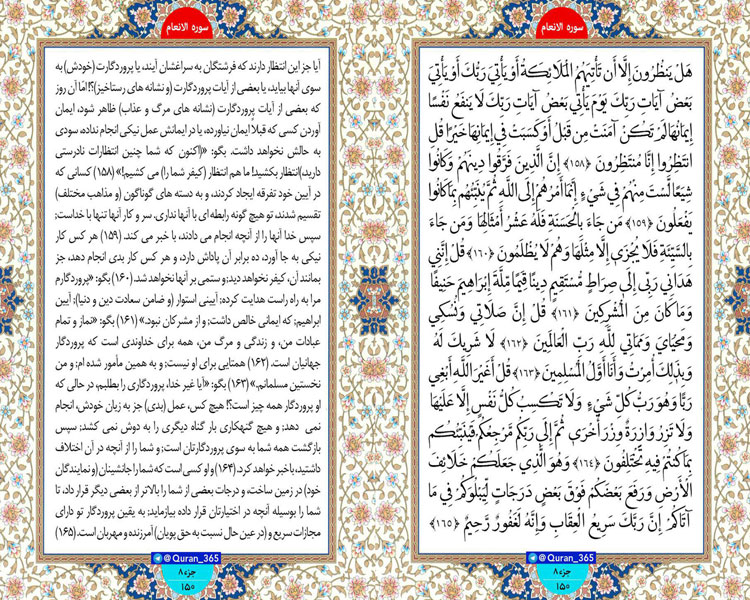 سوره الانعام
هَلْ يَنْظُرُونَ إِلَّا أَنْ تَأْتِيَهُمُ الْمَلَائِكَةُ أَوْ يَأْتِيَ رَبُّكَ أَوْ يَأْتِيَ
بَعْضُ آيَاتِ رَبِّكَ يَوْمَ يَأْتِي بَعْضُ آيَاتِ رَبِّكَ لَا يَنْفَعُ نَفْسًا
إِيمَانُهَا لَمْ تَكُنْ آمَنَتْ مِنْ قَبْلُ أَوْ كَسَبَتْ فِي إِيمَانِهَا خَيْرًا قُلِ
انْتَظِرُوا إِنَّا مُنْتَظِرُونَ ﴿۱۵۸﴾ إِنَّ الَّذِينَ فَرَّقُوا دِينَهُمْ وَكَانُوا
شِيَعًا لَسْتَ مِنْهُمْ فِي شَيْءٍ إِنَّمَا أَمْرُهُمْ إِلَى اللَّهِ ثُمَّ يُنَبِّئُهُمْ بِمَا كَانُوا
يَفْعَلُونَ ﴿۱۵۹﴾ مَنْ جَاءَ بِالْحَسَنَةِ فَلَهُ عَشْرُ أَمْثَالِهَا وَمَنْ جَاءَ
بِالسَّيِّئَةِ فَلَا يُجْزَى إِلَّا مِثْلَهَا وَهُمْ لَا يُظْلَمُونَ ﴿۱۶۰﴾ قُلْ إِنَّنِي
هَدَانِي رَبِّي إِلَى صِرَاطٍ مُسْتَقِيمٍ دِينًا قِيَمًا مِلَّةَ إِبْرَاهِيمَ حَنِيفًا
وَمَا كَانَ مِنَ الْمُشْرِكِينَ ﴿۱۶۱﴾ قُلْ إِنَّ صَلَاتِي وَنُسُكِي
وَمَحْيَايَ وَمَمَاتِي لِلَّهِ رَبِّ الْعَالَمِينَ ﴿۱۶۲﴾ لَا شَرِيكَ لَهُ
وَبِذَلِكَ أُمِرْتُ وَأَنَا أَوَّلُ الْمُسْلِمِينَ ﴿۱۶۳﴾ قُلْ أَغَيْرَ اللَّهِ أَبْغِي
رَبًّا وَهُوَ رَبُّ كُلِّ شَيْءٍ وَلَا تَكْسِبُ كُلُّ نَفْسٍ إِلَّا عَلَيْهَا
وَلَا تَزِرُ وَازِرَةٌ وِزْرَ أُخْرَى ثُمَّ إِلَى رَبِّكُمْ مَرْجِعُكُمْ فَيُنَبِّئُكُمْ
بِمَا كُنْتُمْ فِيهِ تَخْتَلِفُونَ ﴿۱۶۴﴾ وَهُوَ الَّذِي جَعَلَكُمْ خَلَائِفَ
الْأَرْضِ وَرَفَعَ بَعْضَكُمْ فَوْقَ بَعْضٍ دَرَجَاتٍ لِيَبْلُوَكُمْ فِي مَا
آتَاكُمْ إِنَّ رَبَّكَ سَرِيعُ الْعِقَابِ وَإِنَّهُ لَغَفُورٌ رَحِيمٌ ﴿۱۶۵﴾
@Quran_365
جزء ۸
۱۵۰
سوره الانعام
آیا جز این انتظار دارند که فرشتگان به سراغشان آیند، یا پروردگارت (خودش) به
سوی آنها بیاید، یا بعضی از آیات پروردگارت (و نشانه های رستاخیز)؟! امّا آن روز
که بعضی از آیات پروردگارت (نشانه های مرگ و عذاب) ظاهر شود، ایمان
آوردن کسی که قبلا ایمان نیاورده، یا در ایمانش عمل نیکی انجام نداده، سودی
به حالش نخواهد داشت. بگو: «(اکنون که شما چنین انتظارات نادرستی
دارید) انتظار بکشید! ما هم انتظار (کیفر شما را) می کشیم!» (۱۵۸) کسانی که
در آیین خود تفرقه ایجاد کردند، و به دسته های گوناگون (و مذاهب مختلف)
تقسیم شدند، تو هیچ گونه رابطه ای با آنها نداری. سر و کار آنها تنها با خداست;
سپس خدا آنها را از آنچه انجام می دادند، با خبر می کند. (۱۵۹) هر کس کار
نیکی به جا آورد، ده برابر آن پاداش دارد، و هر کس کار بدی انجام دهد، جز
بمانند آن، کیفر نخواهد دید; و ستمی بر آنها نخواهد شد. (۱۶۰) بگو: «پروردگارم
مرا به راه راست هدایت کرده; آیینی استوار (و ضامن سعادت دین و دنیا); آیین
ابراهیم; که ایمانی خالص داشت; و از مشرکان نبود.» (۱۶۱) بگو: «نماز و تمام
عبادات من، و زندگی و مرگ من، همه برای خداوندی است که پروردگار
جهانیان است. (۱۶۲) همتایی برای او نیست; و به همین مأمور شده ام; و من
نخستین مسلمانم.» (۱۶۳) بگو: «آیا غیر خدا، پروردگاری را بطلبم، در حالی که
او پروردگار همه چیز است؟! هیچ کس، عمل (بدی) جز به زیان خودش، انجام
نمی دهد; و هیچ گنهکاری بار گناه دیگری را به دوش نمی کشد; سپس
بازگشت همه شما به سوی پروردگارتان است; و شما را از آنچه در آن اختلاف
داشتید، با خبر خواهد کرد. (۱۶۴) و او کسی است که شما را جانشینان (و نمایندگان
خود) در زمین ساخت، و درجات بعضی از شما را بالاتر از بعضی دیگر قرار داد، تا
شما را بوسیله آنچه در اختیارتان قرار داده بیازماید; به یقین پروردگار تو دارای
مجازات سریع و (در عین حال نسبت به حق پویان) آمرزنده و مهربان است. (۱۶۵)
@Quran_365
جزء ۸
۱۵۰